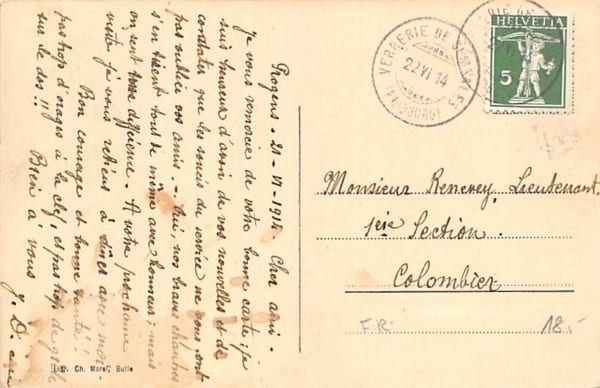 Progens - 21 - VI - 1914. Cher ami -
je vous remercie de votre bonne carte ; je
suis heureux d'avoir de vos nouvelles et de
constater que les soucis du service ne vous ont
pas oublié vos amis. - Oui, nos braves
s'en tout de même avec honneur ; mais
on sent différence. A votre prochaine
visite je vous retiens à dîner avec moi.
Bon courage et bonne santé !
pas trop d'orages à la clef, et pas trop de
sur le dos !! Bien à vous
J. D.
Lib. Ch. Morel, Bulle
VERRERIE DE SEMSALES
22.VI.14
(FRIBOURG)
HELVETIA
5
Monsieur Renevey, Lieutenant.
1ère Section.
Colombier
FR:
18.-